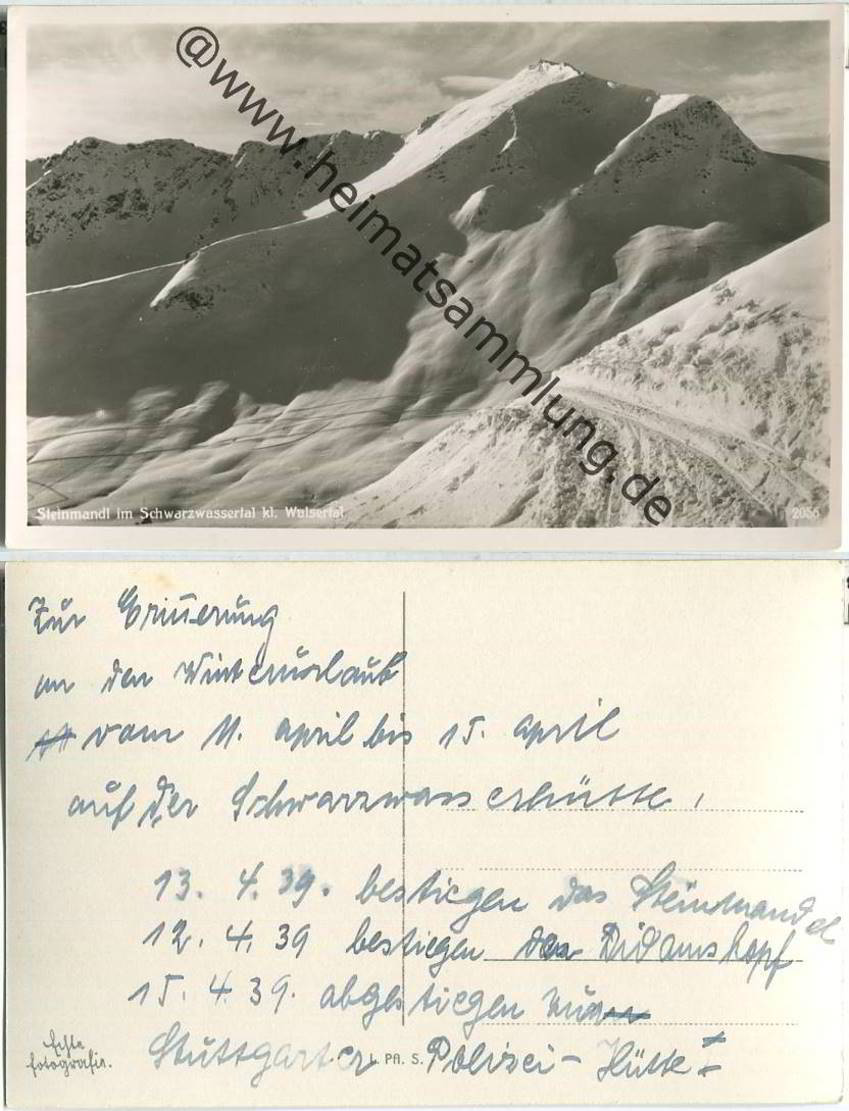 @www.heimatsammlung.de
Steinmandl im Schwarzwassertal kl. Walsertal
2055
Zur Erinnerung
an den Winterurlaub
vom 11. april bis 15. april
auf der Schwarzwasserhütte,
13. 4. 39. bestiegen das Steinmandel
12. 4. 39 bestiegen den Didamskopf
15. 4. 39. abgestiegen zur
Stuttgarter Polizei-Hütte
Echte
Fotografie.
L. PA. S.